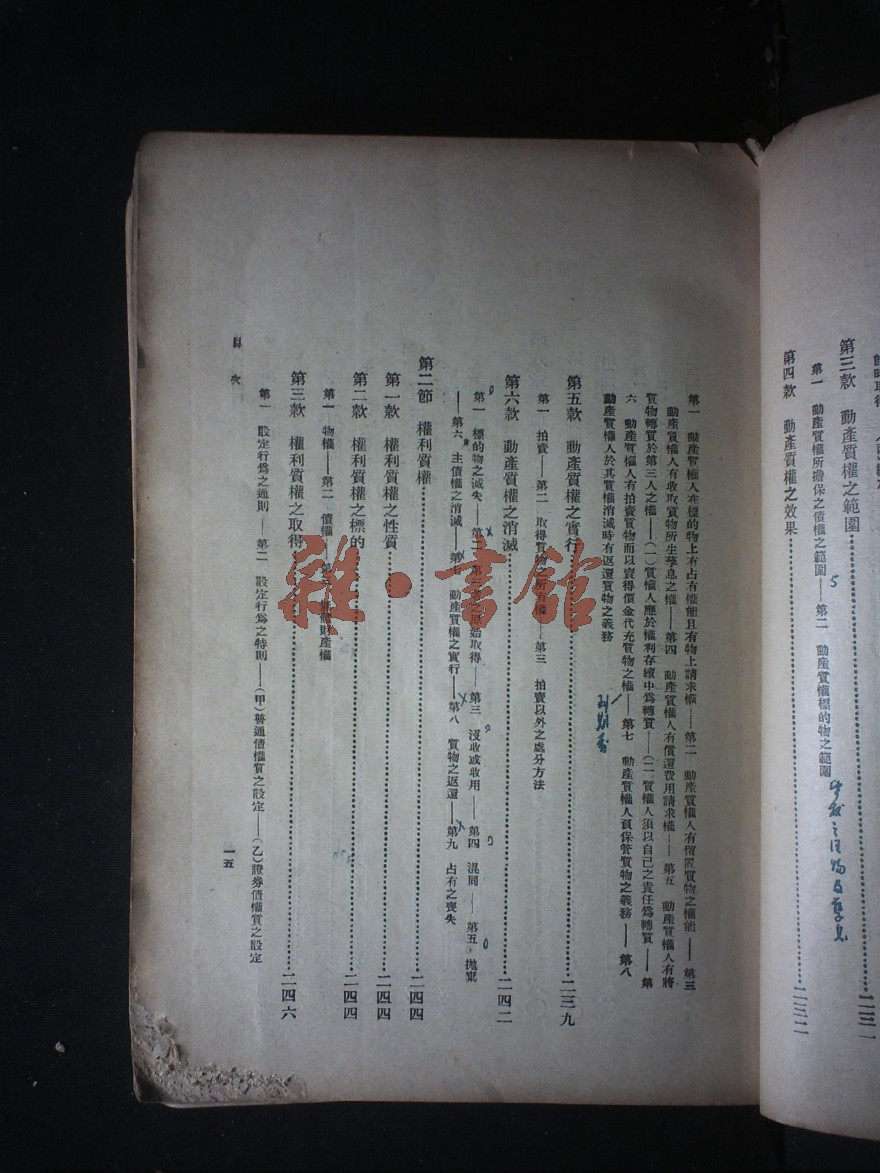 第三款 動產質權之範圍……二三一
第一 動產質權所擔保之債權之範圍——第二 動產質權標的物之範圍
第四款 動產質權之效果……二三二
第一 動產質權人在標的物上有占有權能且有物上請求權——第二 動產質權人有留置質物之權能——第三
動產質權人有收取質物所生孳息之權——第四 動產質權人有償還費用請求權——第五 動產質權人有將
質物轉質於第三人之權——(一)質權人應於權利存續中爲轉質——(二)質權人須以自己之責任爲轉質——第
六 動產質權人有拍賣質物而以賣得價金代充質物之權——第七 動產質權人負保管質物之義務——第八
動產質權人於其質權消滅時有返還質物之義務
第五款 動產質權之實行……二三九
第一 拍賣——第二 取得質物之所有權——第三 拍賣以外之處分方法
第六款 動產質權之消滅……二四二
第一 標的物之滅失——第二 第三者之原始取得——第三 沒收或收用——第四 混同——第五 拋棄
——第六 主債權之消滅——第七 動產質權之實行——第八 質物之返還——第九 占有之喪失
第二節 權利質權……二四四
第一款 權利質權之性質……二四四
第二款 權利質權之標的……二四四
第一 物權——第二 債權——第三 無體財產權
第三款 權利質權之取得……二四六
第一 設定行爲之通則——第二 設定行爲之特則——(甲)普通債權質之設定——(乙)證券債權質之設定
目次
一五
雜·書館